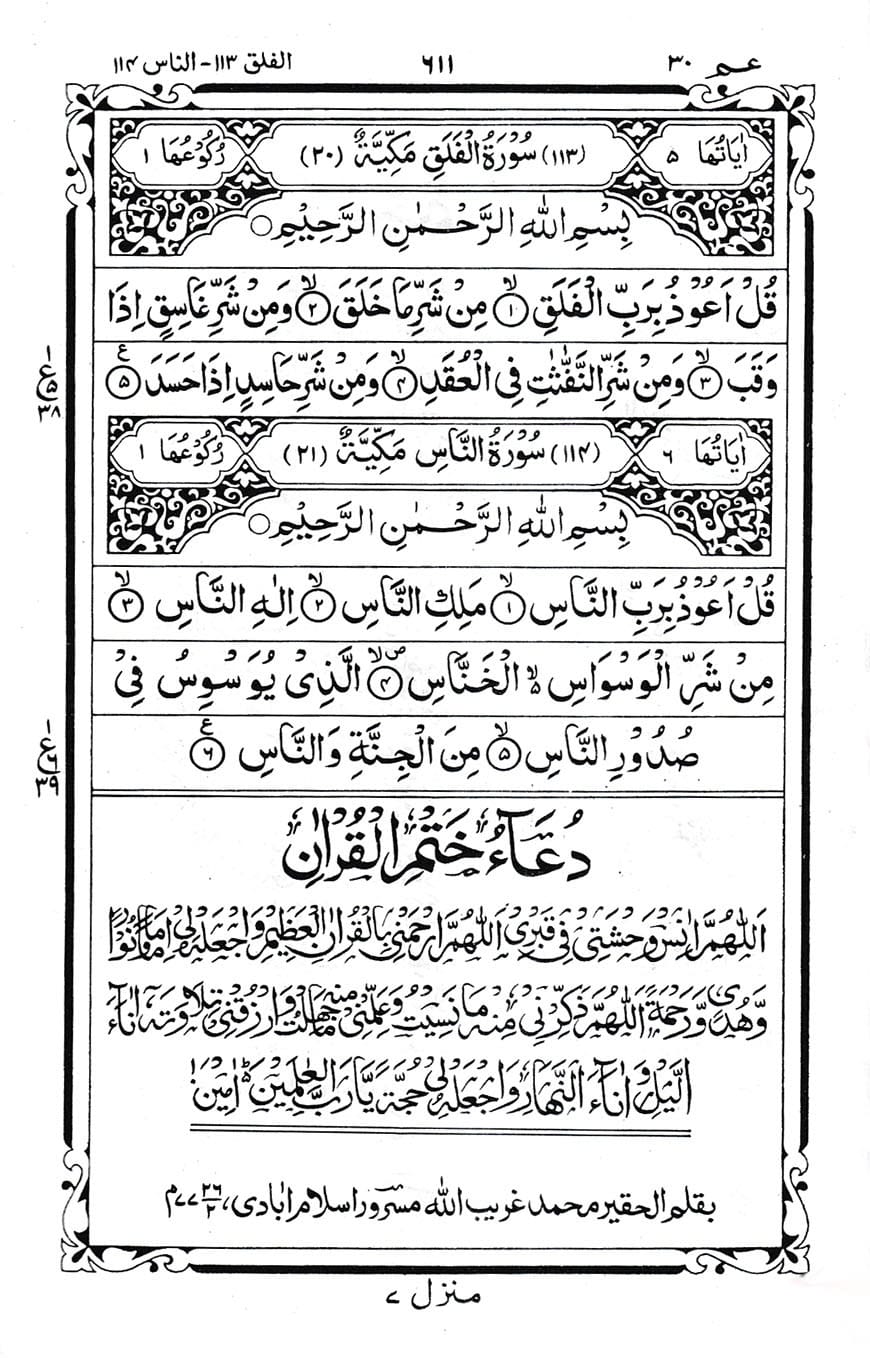 عـم ٣٠
٦١١
الفلق ١١٣ - الناس ١١٤
اٰيَاتُهَا ٥
(١١٣) سُوْرَةُ الْفَلَقِ مَكِّيَّةٌ (٢٠)
رُكُوْعُهَا ١
بِسْمِ اللّٰهِ الرَّحْمٰنِ الرَّحِيْمِ ○
قُلْ اَعُوْذُ بِرَبِّ الْفَلَقِ ۙ ١ مِنْ شَرِّ مَا خَلَقَ ۙ ٢ وَمِنْ شَرِّ غَاسِقٍ اِذَا
وَقَبَ ۙ ٣ وَمِنْ شَرِّ النَّفّٰثٰتِ فِى الْعُقَدِ ۙ ٤ وَمِنْ شَرِّ حَاسِدٍ اِذَا حَسَدَ ٥ ع
١
ع ٥
٣٨
اٰيَاتُهَا ٦
(١١٤) سُوْرَةُ النَّاسِ مَكِّيَّةٌ (٢١)
رُكُوْعُهَا ١
بِسْمِ اللّٰهِ الرَّحْمٰنِ الرَّحِيْمِ ○
قُلْ اَعُوْذُ بِرَبِّ النَّاسِ ۙ ١ مَلِكِ النَّاسِ ۙ ٢ اِلٰهِ النَّاسِ ۙ ٣
مِنْ شَرِّ الْوَسْوَاسِ ۙ۵ الْخَنَّاسِ ۙۖ ٤ الَّذِىْ يُوَسْوِسُ فِىْ
صُدُوْرِ النَّاسِ ۙ ٥ مِنَ الْجِنَّةِ وَالنَّاسِ ٦ ع
١
ع ٦
٣٩
دُعَآءُ خَتْمِ الْقُرْاٰنِ
اَللّٰهُمَّ اٰنِسْ وَحْشَتِىْ فِىْ قَبْرِىْ اَللّٰهُمَّ ارْحَمْنِىْ بِالْقُرْاٰنِ الْعَظِيْمِ وَاجْعَلْهُ لِىْ اِمَامًا وَّنُوْرًا
وَّهُدًى وَّرَحْمَةً اَللّٰهُمَّ ذَكِّرْنِىْ مِنْهُ مَا نَسِيْتُ وَعَلِّمْنِىْ مِنْهُ مَا جَهِلْتُ وَارْزُقْنِىْ تِلَاوَتَهٗ اٰنَآءَ
الَّيْلِ وَاٰنَآءَ النَّهَارِ وَاجْعَلْهُ لِىْ حُجَّةً يَّا رَبَّ الْعٰلَمِيْنَ ؕ اٰمِيْنَ
بقلم الحقير محمد غريب الله مسرور اسلام اٰبادى، ٢٦/٢ ٧٧م
منزل ٧